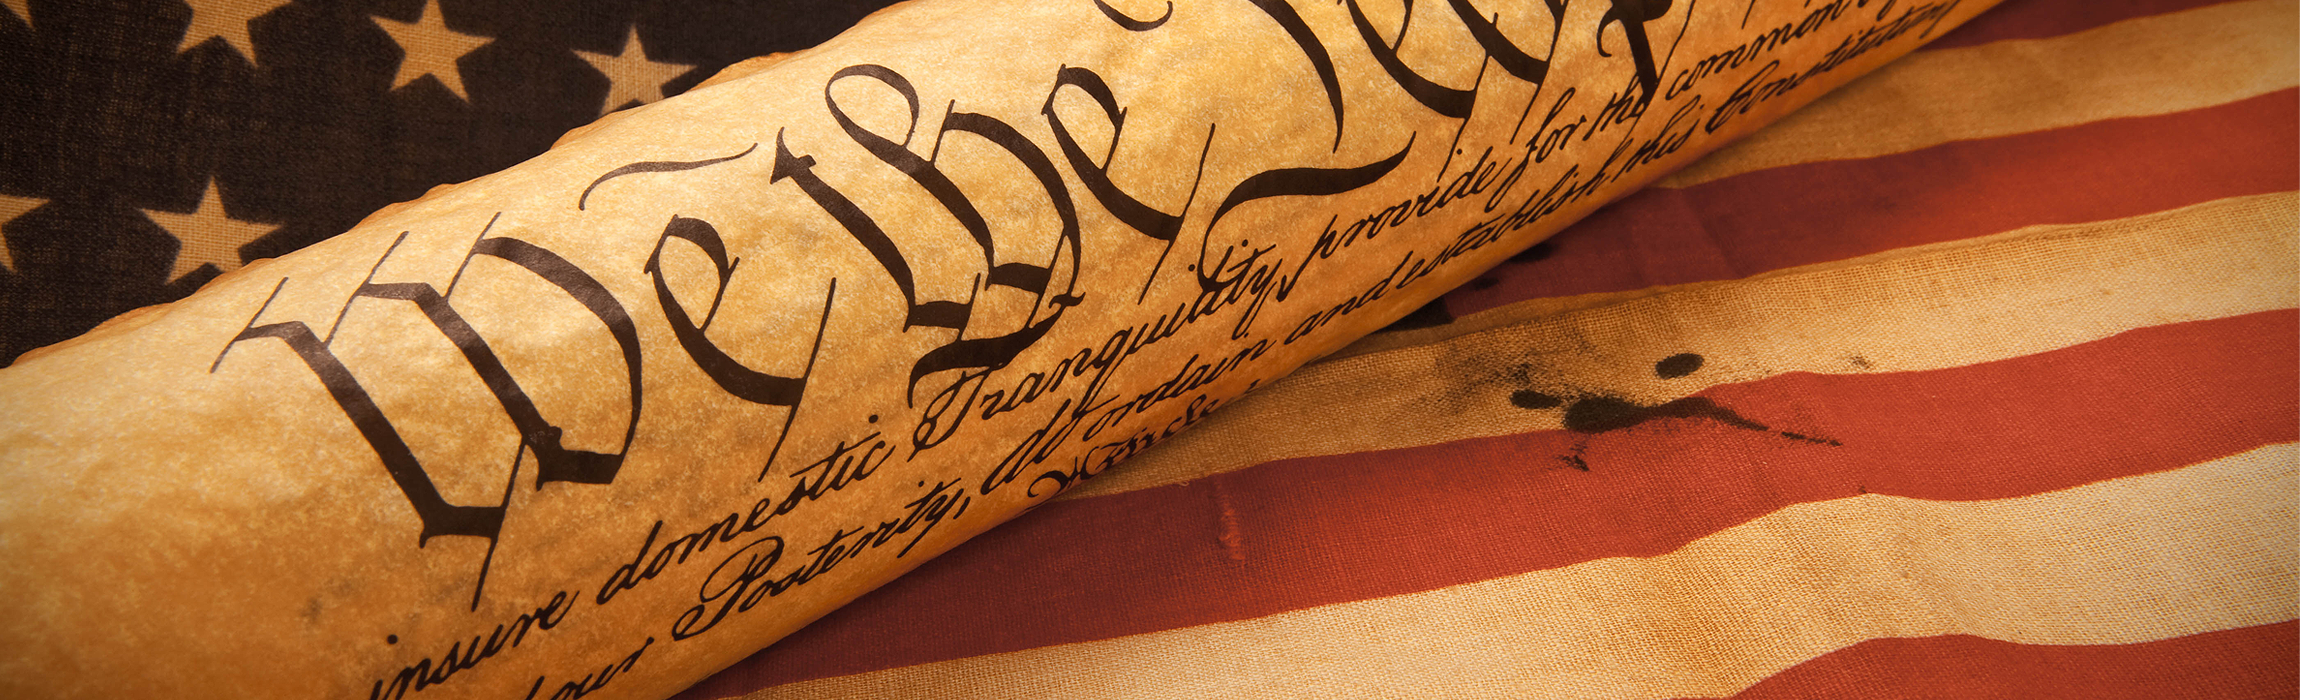 We the Peop
insure domestic Tranquility, provide for the common
our Posterity, do ordain and establish this Constitution